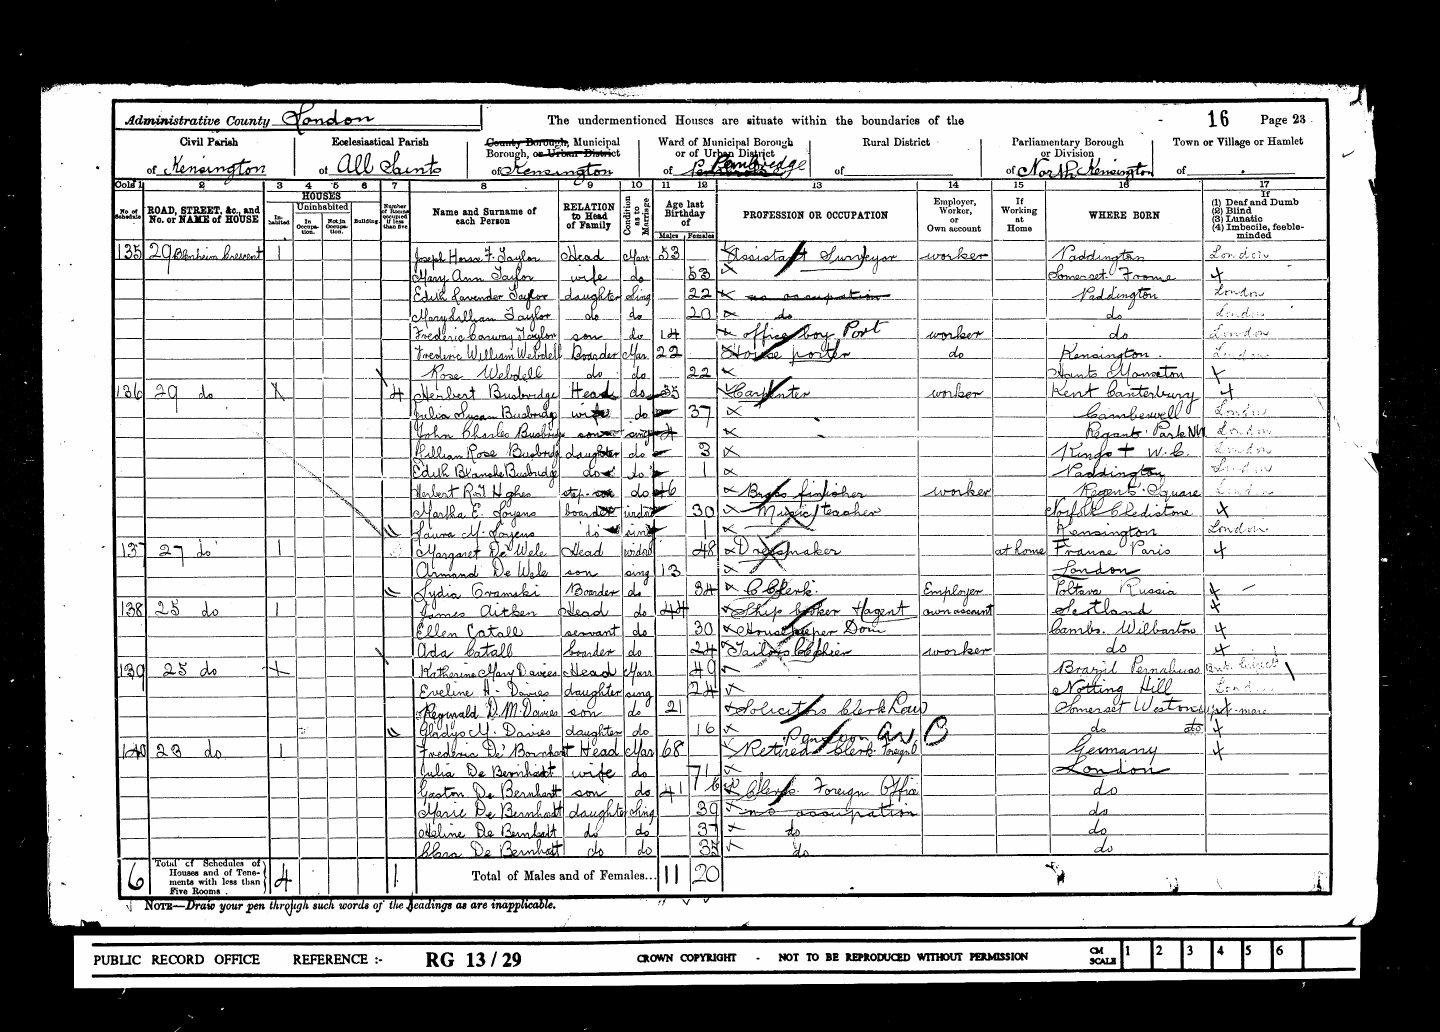 Administrative County London
The undermentioned Houses are situate within the boundaries of the
16 Page 23
Civil Parish of Kensington
Ecclesiastical Parish of All Saints
County Borough, Municipal Borough, or Urban District of Kensington
Ward of Municipal Borough or of Urban District of Pembridge
Rural District of
Parliamentary Borough or Division of North Kensington
Town or Village or Hamlet of
Cols 1 2 3 4 5 6 7 8 9 10 11 12 13 14 15 16 17
No. of Schedule
ROAD, STREET, &c., and No. or NAME of HOUSE
HOUSES
Inhabited
Uninhabited
In Occupation.
Not in Occupation.
Building
Number of Rooms occupied if less than five
Name and Surname of each Person
RELATION to Head of Family
Condition as to Marriage
Age last Birthday of
Males Females
PROFESSION OR OCCUPATION
Employer, Worker, or Own account
If Working at Home
WHERE BORN
If (1) Deaf and Dumb (2) Blind (3) Lunatic (4) Imbecile, feeble-minded
135 29 Blenheim Crescent 1 Joseph Horace F. Taylor Head Mar 53 Assistant Surveyor worker Paddington London
Mary Ann Taylor wife do 53 Somerset Froome
Edith Lavender Taylor daughter sing 22 no occupation Paddington London
Mary Lillian Taylor do do 20 do do London
Frederic Taylor son do 14 office boy Port worker do London
Frederic William Webdell Boarder Mar 22 House porter do Kensington London
Rose Webdell do do 22 Hants
136 29 do 4 Herbert Busbridge Head do 35 Carpenter worker Kent Canterbury
Julia Susan Busbridge wife do 37 Camberwell London
John Charles Busbridge son sing 4 Regents Park NW London
Lillian Rose Busbridge daughter do 3 Kings + W.C. London
Edith Blanche Busbridge do do 1 Paddington London
Herbert step-son do 16 Brass finisher worker Regent Square London
Martha E. boarder widow 30 Music teacher Norfolk
Laura M. do sing 1 Kensington London
137 27 do 1 Margaret De Wele Head widow 48 Dressmaker at home France Paris
Armand De Wele son sing 13 London
Lydia Boarder do 34 Clerk Employer Poltava Russia
138 25 do 1 James Aitken Head do 44 Ship broker + agent own account Scotland
Ellen Catall servant do 30 Housekeeper Dom Cambs. Wilburton
Ada Catall boarder do 24 Tailors Cashier worker do
139 25 do Katherine Mary Davies Head Marr 49 Brazil
Eveline H. Davies daughter sing 24 Notting Hill London
Reginald D. M. Davies son do 21 Solicitors Clerk Law Somerset Weston
Gladys M. Davies daughter do 16 do do
140 23 do 1 Frederic De Bernhart Head Mar 68 Retired Clerk Foreign O Pension B Germany
Julia De Bernhardt wife do 71 London
Gaston De Bernhart son do 41 Clerk Foreign Office do
Marie De Bernhardt daughter sing 39 no occupation do
Heline De Bernhardt do do 37 do do
Clara De Bernhardt do do 35 do do
6 Total of Schedules of Houses and of Tenements with less than Five Rooms 4 1 Total of Males and of Females... 11 20
NOTE—Draw your pen through such words of the headings as are inapplicable.
PUBLIC RECORD OFFICE REFERENCE :- RG 13 / 29 CROWN COPYRIGHT - NOT TO BE REPRODUCED WITHOUT PERMISSION CM SCALE 1 2 3 4 5 6